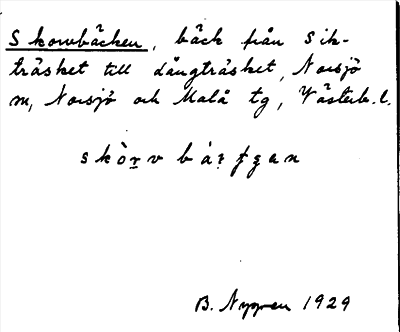 Skorvbäcken, bäck från Sik-
träsket till Långträsket, Norsjö
sn, Norsjö och Malå tg, Västerb. l.
B. Nygren 1929